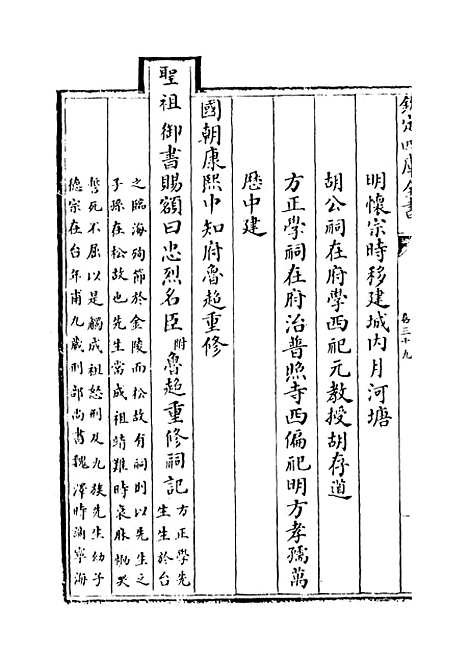 欽定四庫全書
卷三十九
明懷宗時移建城内月河塘
胡公祠在府學西祀元教授胡存道
方正學祠在府治普照寺西偏祀明方孝孺萬
歴中建
國朝康熙中知府魯超重修
聖祖御書賜額曰忠烈名臣附魯超重修祠記方正學先
生生於台
之臨海殉節於金陵而松故有祠則以先生之
子孫在松故也先生當成祖靖難時衰麻慟哭
誓死不屈以是觸成祖怒刑及九族先生幼子
德宗在台年甫九歲刑部尚書魏澤時謫寧海